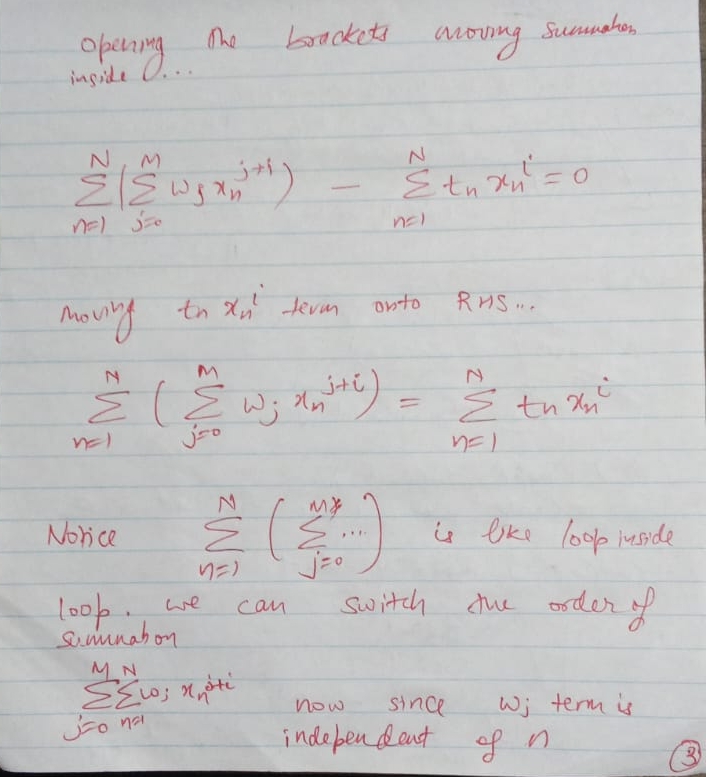 Opening the brackets moving summation
inside ...
N∑n=1 (M∑j=0 wj xn^j+i) − N∑n=1 tn xn^i = 0
Moving tn xn^i term onto RHS...
N∑n=1 (M∑j=0 wj xn^j+i) = N∑n=1 tn xn^i
Notice N∑n=1 (M∑j=0 ...) is like loop inside
loop. we can switch the order of
summation
M∑j=0 N∑n=1 wj xn^j+i now since wj term is
independent of n
3